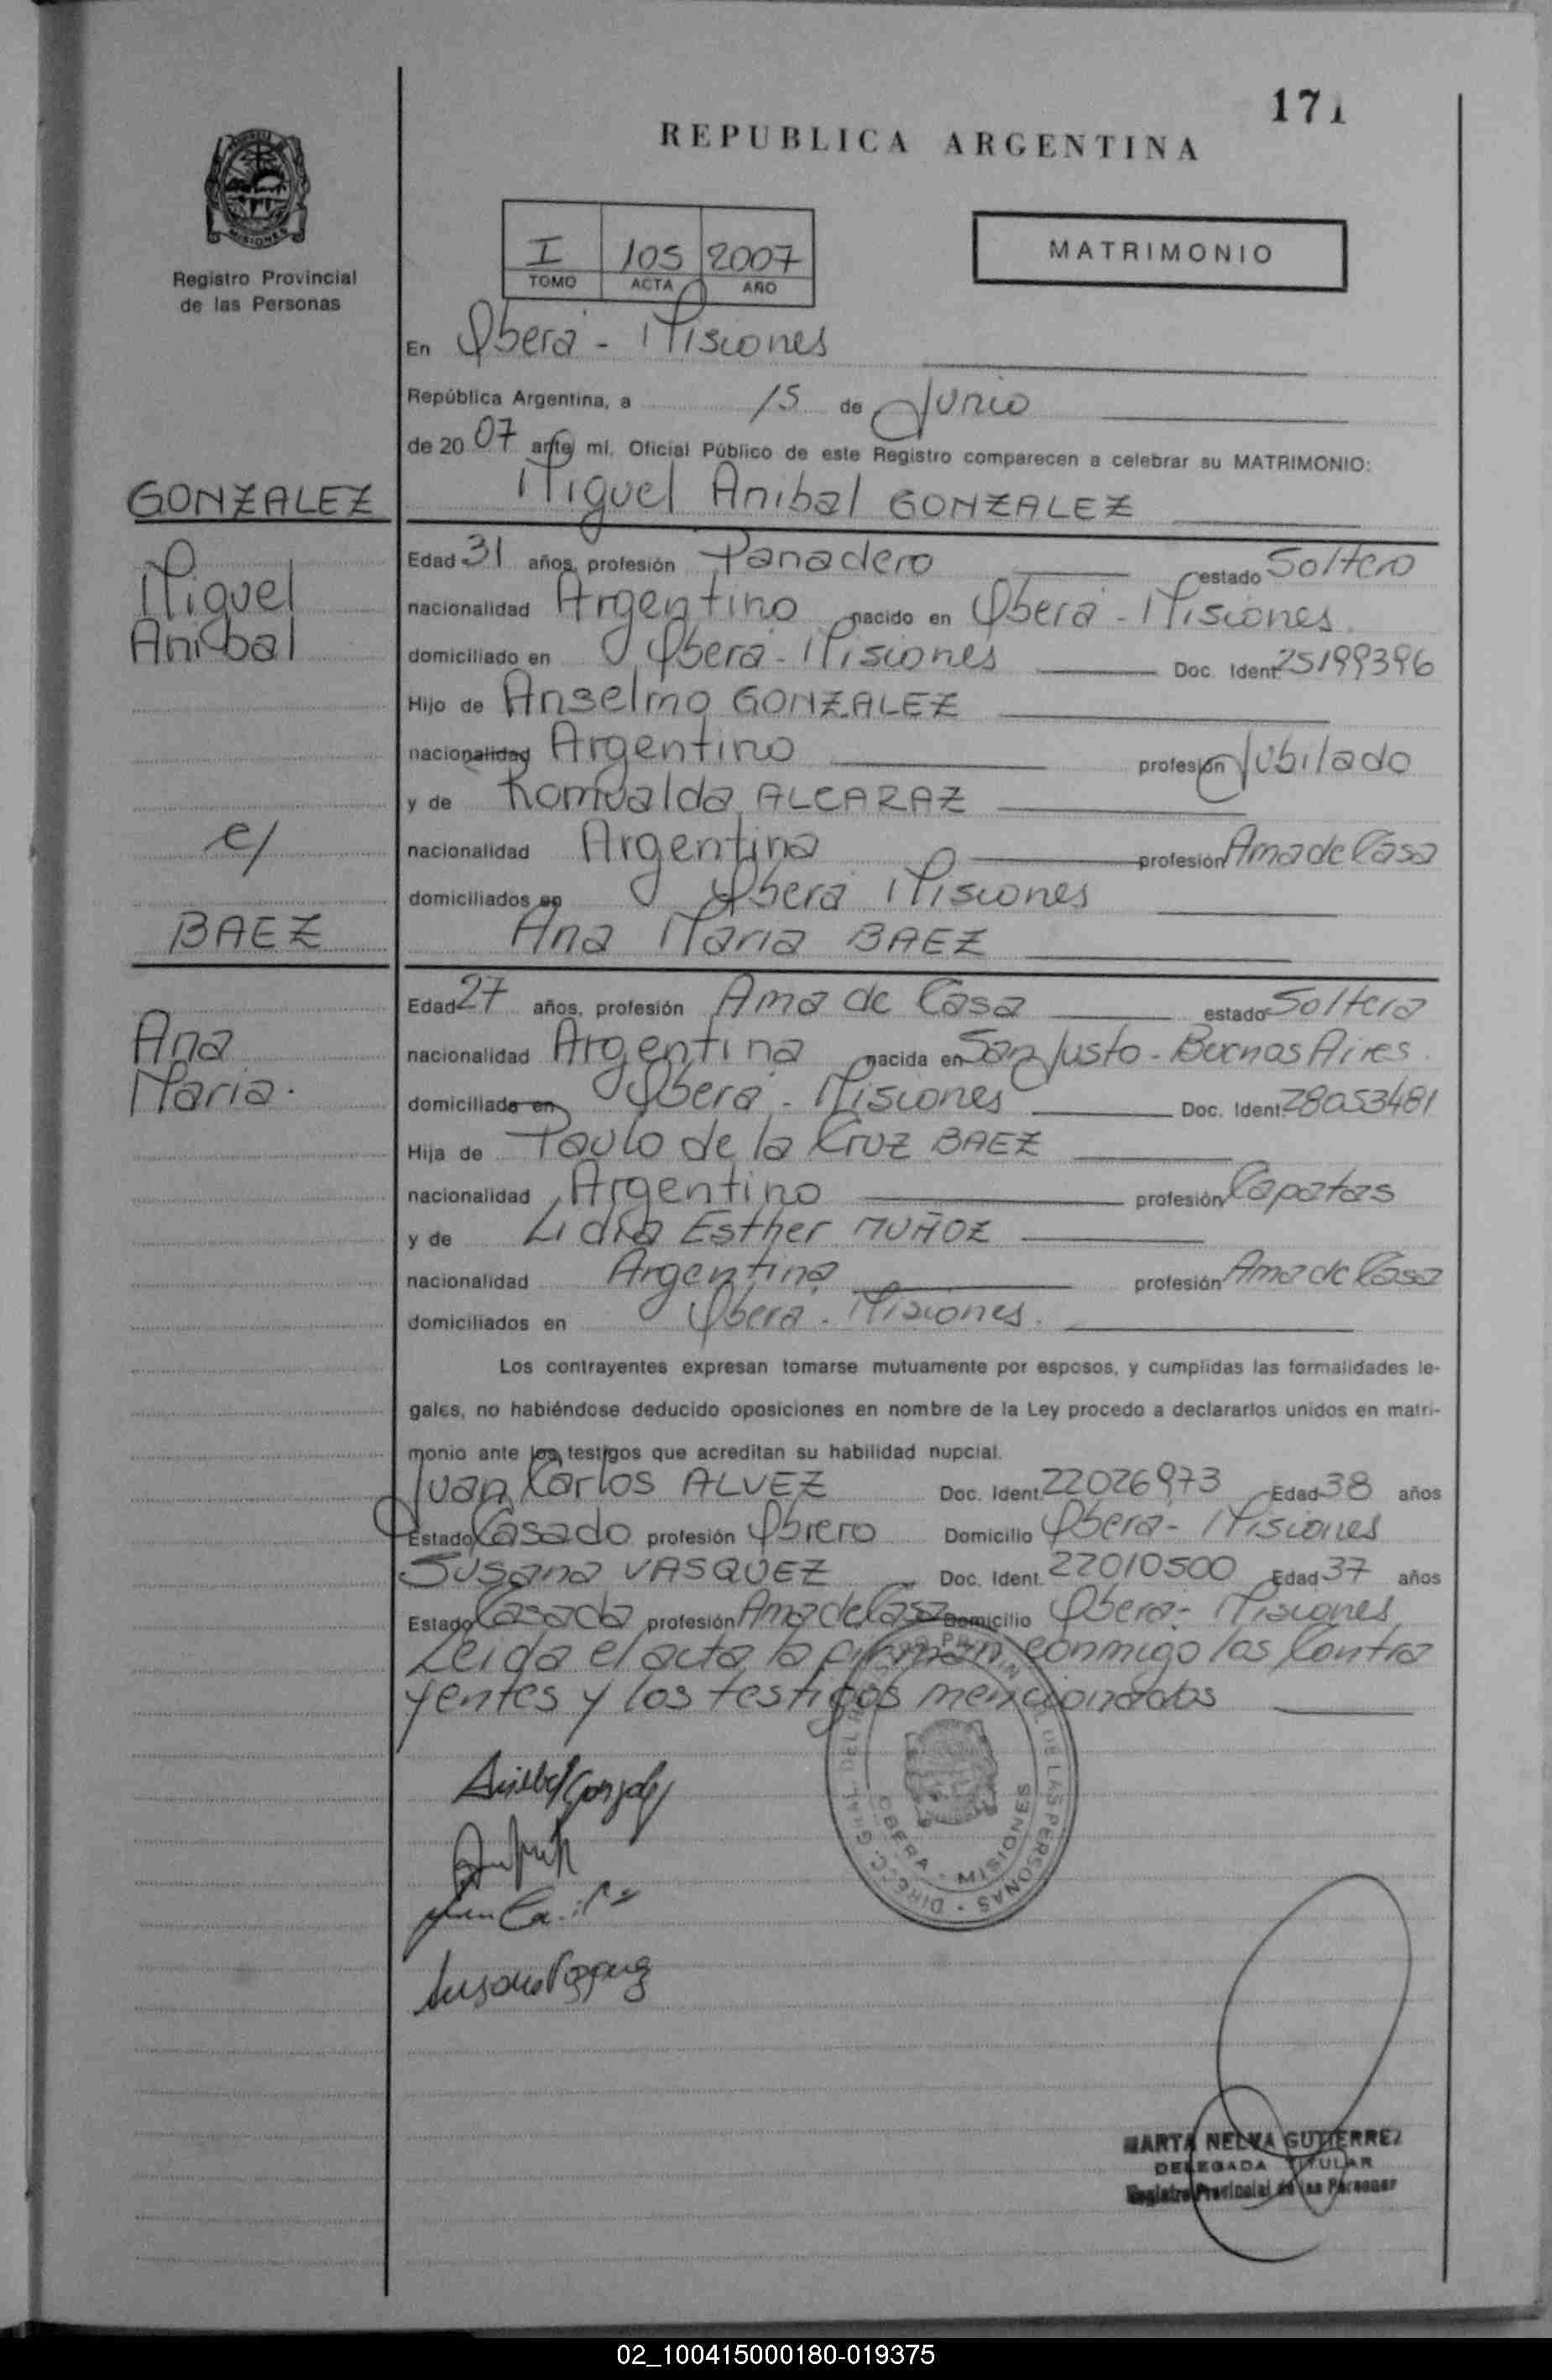 171
REPUBLICA ARGENTINA
MISIONES
Registro Provincial
de las Personas
I 105 2007
TOMO ACTA AÑO
MATRIMONIO
En Oberá - Misiones
República Argentina, a 15 de Junio
de 20 07 ante mi, Oficial Público de este Registro comparecen a celebrar su MATRIMONIO:
GONZALEZ
Miguel Anibal GONZALEZ
Miguel
Anibal
Edad 31 años, profesión Panadero estado Soltero
nacionalidad Argentino nacido en Oberá - Misiones
domiciliado en Oberá - Misiones Doc. Ident. 25199396
Hijo de Anselmo GONZALEZ
nacionalidad Argentino profesión Jubilado
y de Romualda ALCARAZ
c/
nacionalidad Argentina profesión Ama de Casa
domiciliados en Oberá Misiones
BAEZ
Ana Maria BAEZ
Ana
Maria.
Edad 27 años, profesión Ama de Casa estado Soltera
nacionalidad Argentina nacida en San Justo - Buenos Aires.
domiciliada en Oberá - Misiones Doc. Ident. 28053481
Hija de Paulo de la Cruz BAEZ
nacionalidad Argentino profesión Capatas
y de Lidia Esther MUÑOZ
nacionalidad Argentina profesión Ama de Casa
domiciliados en Oberá - Misiones.
Los contrayentes expresan tomarse mutuamente por esposos, y cumplidas las formalidades le-
gales, no habiéndose deducido oposiciones en nombre de la Ley procedo a declararlos unidos en matri-
monio ante los testigos que acreditan su habilidad nupcial.
Juan Carlos ALVEZ Doc. Ident. 22026973 Edad 38 años
Estado Casado profesión Obrero Domicilio Oberá - Misiones
Susana VASQUEZ Doc. Ident. 22010500 Edad 37 años
Estado Casada profesión Ama de Casa Domicilio Oberá - Misiones
Leida el acta la firman conmigo los Contra
yentes y los testigos mencionados
DE LAS PERSONAS
OBERA - MISIONES
Anibal Gonzalez
MARTA NELVA GUTIERREZ
DELEGADA TITULAR
Registro Provincial de las Personas
02_100415000180-019375